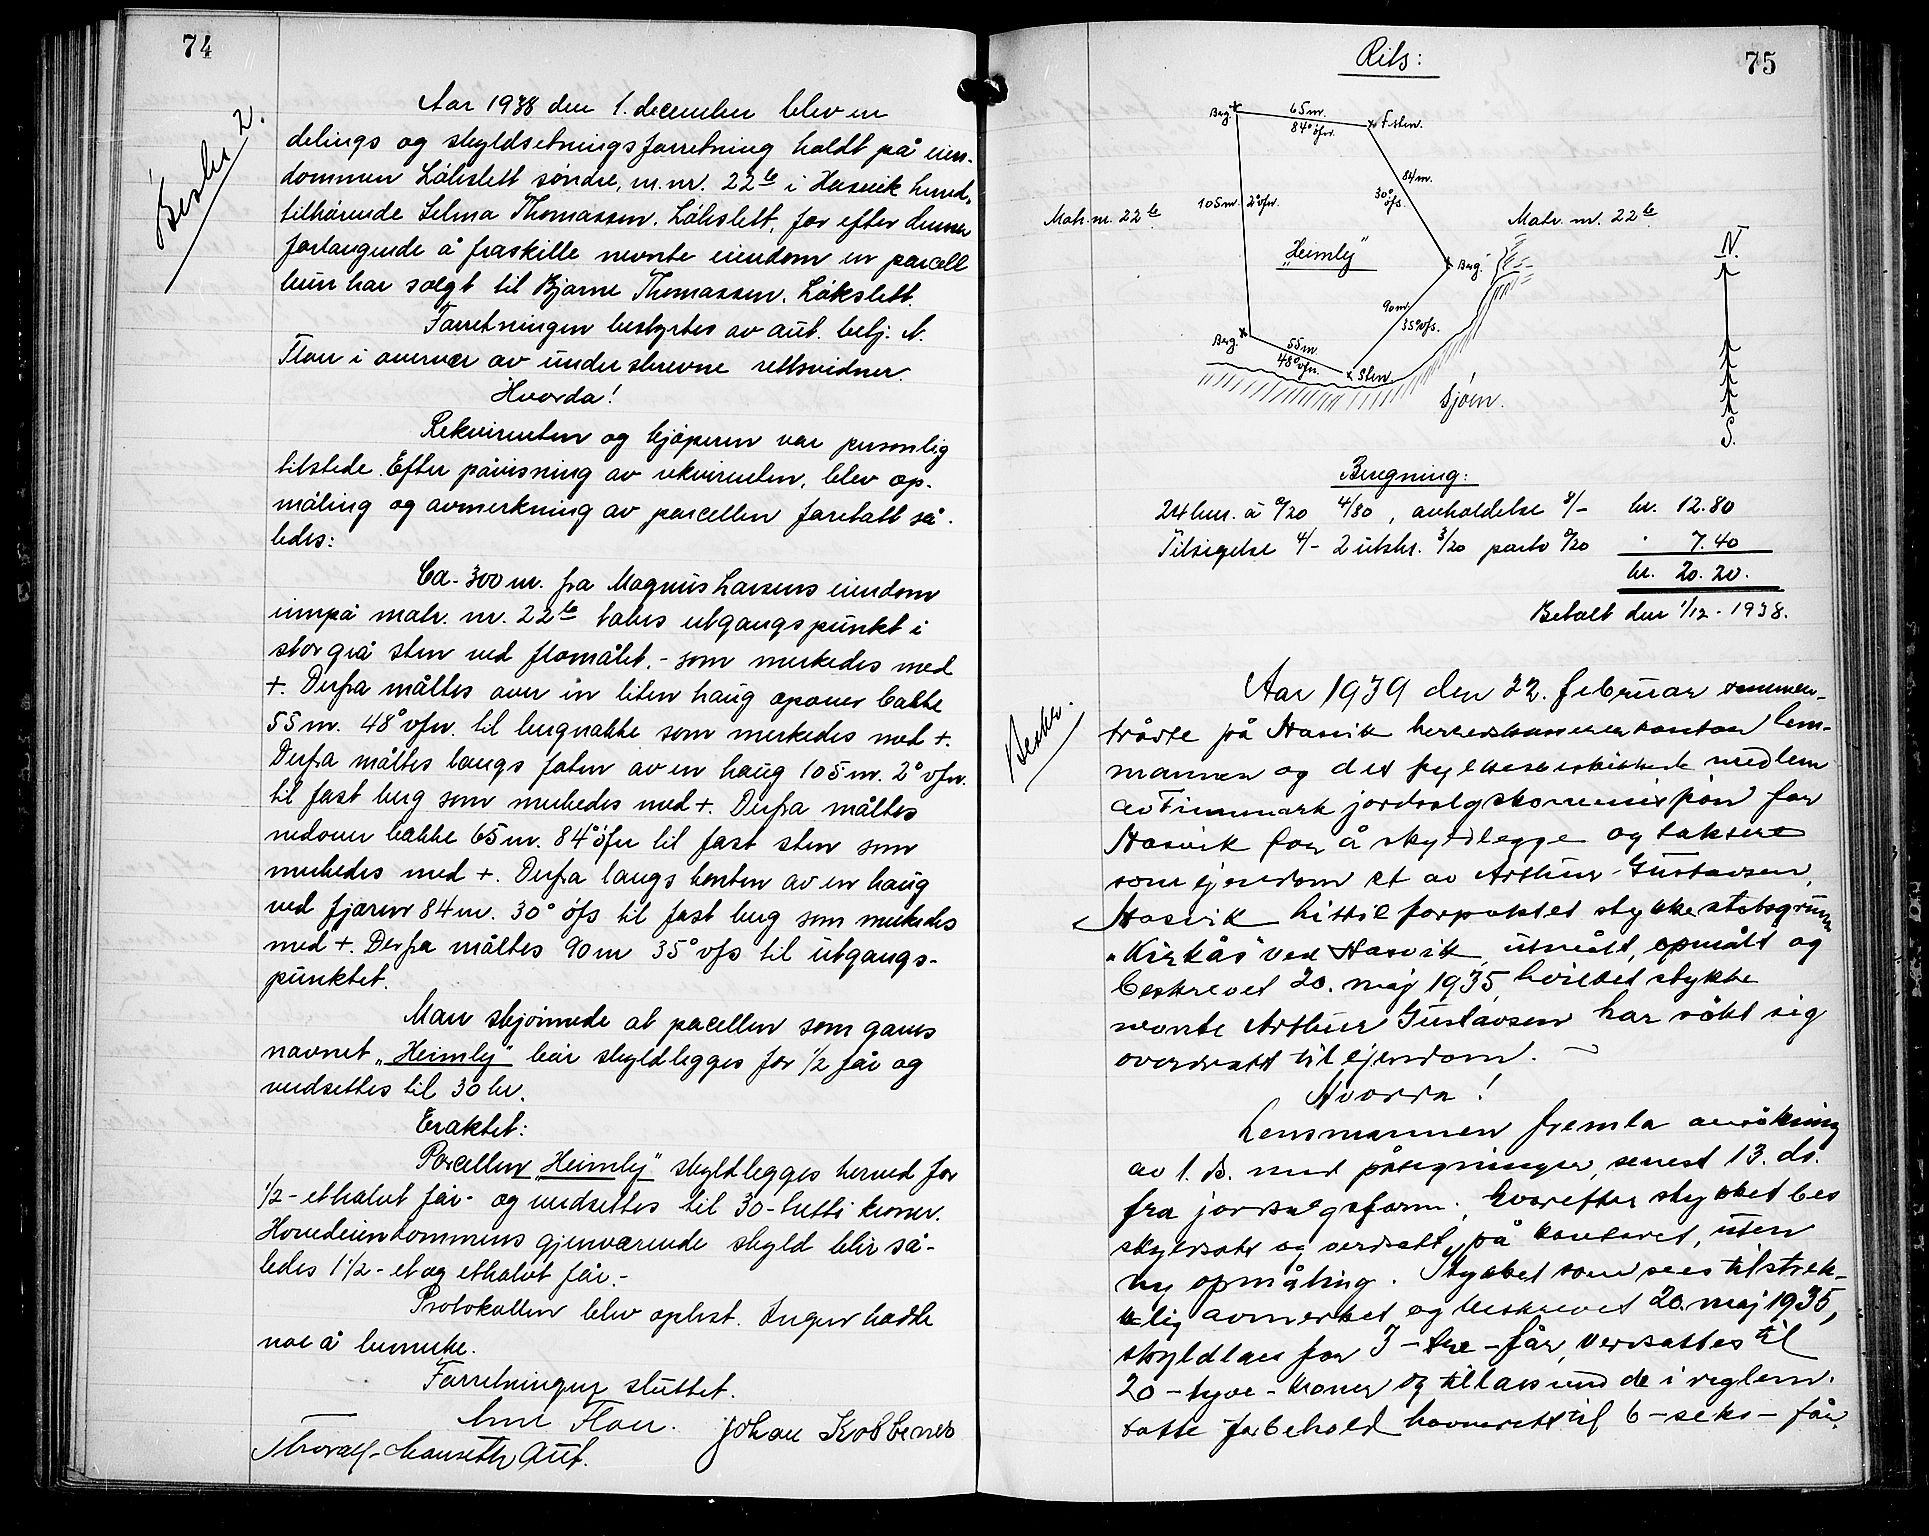 74
Beskr. 2.
Aar 1938 den 1. december blev en
delings og skyldsetningsforretning holdt på eien-
dommen Lökslett søndre, m.nr. 22 i Hasvik herred,
tilhørende Selma Thomassen, Lökslett, for efter dennes
forlangende å fraskille nevnte eiendom en parcell
hun har solgt til Bjarne Thomassen, Lökslett.
Forretningen bestyrtes av aut. betj. A.
Flaer i overvær av underskrevne rettsvidner.
Hvorda!
Rekvirenten og kjöperen var personlig
tilstede. Efter påvisning av rekvirenten, blev op-
måling og avmerkning av parcellen foretatt så-
ledes:
Ca. 300 m. fra Magnus Larsens eiendom
innpå matr. nr. 22 takes utgangspunkt i
stor grå sten ved flomålet, - som merkedes med
+. Derfra måltes over en liten haug opover bakke
55 m. 48° vfn. til bergnakke som merkedes med +.
Derfra måltes langs foten av en haug 105 m. 2° vfn.
til fast berg som merkedes med +. Derfra måltes
nedover bakke 65 m. 84° öfn til fast sten som
merkedes med +. Derfra langs kanten av en haug
ved fjæren 84 m. 30° öfs til fast berg som merkedes
med +. Derfra måltes 90 m 35° vfs til utgangs-
punktet.
Man skjönnede at parcellen som gaves
navnet "Heimly" bör skyldlegges for 1/2 får og
verdsettes til 30 kr.
Eraktet:
Parcellen "Heimly" skyldlegges herved for
1/2 - ethalvt får - og verdsettes til 30 - tretti kroner.
Hovedeiendommens gjenværende skyld blir så-
ledes 1 1/2 - et og ethalvt får. -
Protokollen blev oplest. Ingen hadde
noe å bemerke.
Forretningen sluttet.
Flaer. Johan Kobbenes
Aut.
75
Rits:
Berg. 65 m. 84° öfn. F. sten.
84 m. 30° öfs.
105 m. 2° vfn.
Matr. nr. 22 Matr. nr. 22
"Heimly"
Berg.
90 m. 35° vfs.
Berg. 55 m 48° vfn. Sten
Sjöen.
N.
S.
Beregning:
24 km. à 0/20 4/80, avholdelse 8/- kr. 12.80
Tilsigelse 4/- 2 utskr. 3/20 porto 0/20 " 7.40
kr. 20.20.
Betalt den 1/12 - 1938.
Beskr.
Aar 1939 den 22. februar sammen-
trådte på Hasvik herredskassererkontor lens-
mannen og det fylkesbeskikkede medlem
av Finnmark jordsalgskommisjon for
Hasvik for å skyldlegge og taksere
som ejendom et av Arthur Gustavsen,
Hasvik hittil forpaktet stykke statsgrunn
"Kirkås" ved Hasvik, utmålt, opmålt og
beskrevet 20. maj 1935, hvilket stykke
nevnte Arthur Gustavsen har sökt sig
overdratt til ejendom.
Hvorda!
Lensmannen fremla ansökning
av 1. ds. med påtegninger, senest 13. ds.
fra jordsalgsform., hvorefter stykket bes
skyldsatt og verdsatt på kontoret, uten
ny opmåling. Stykket som sees tilstrek-
kelig avmerket og beskrevet 20. maj 1935,
skyldlaes for 3 - tre - får, verdsattes til
20 - tyve - kroner og tillaes under de i reglem.
satte forbehold havnerett til 6 - seks - får.